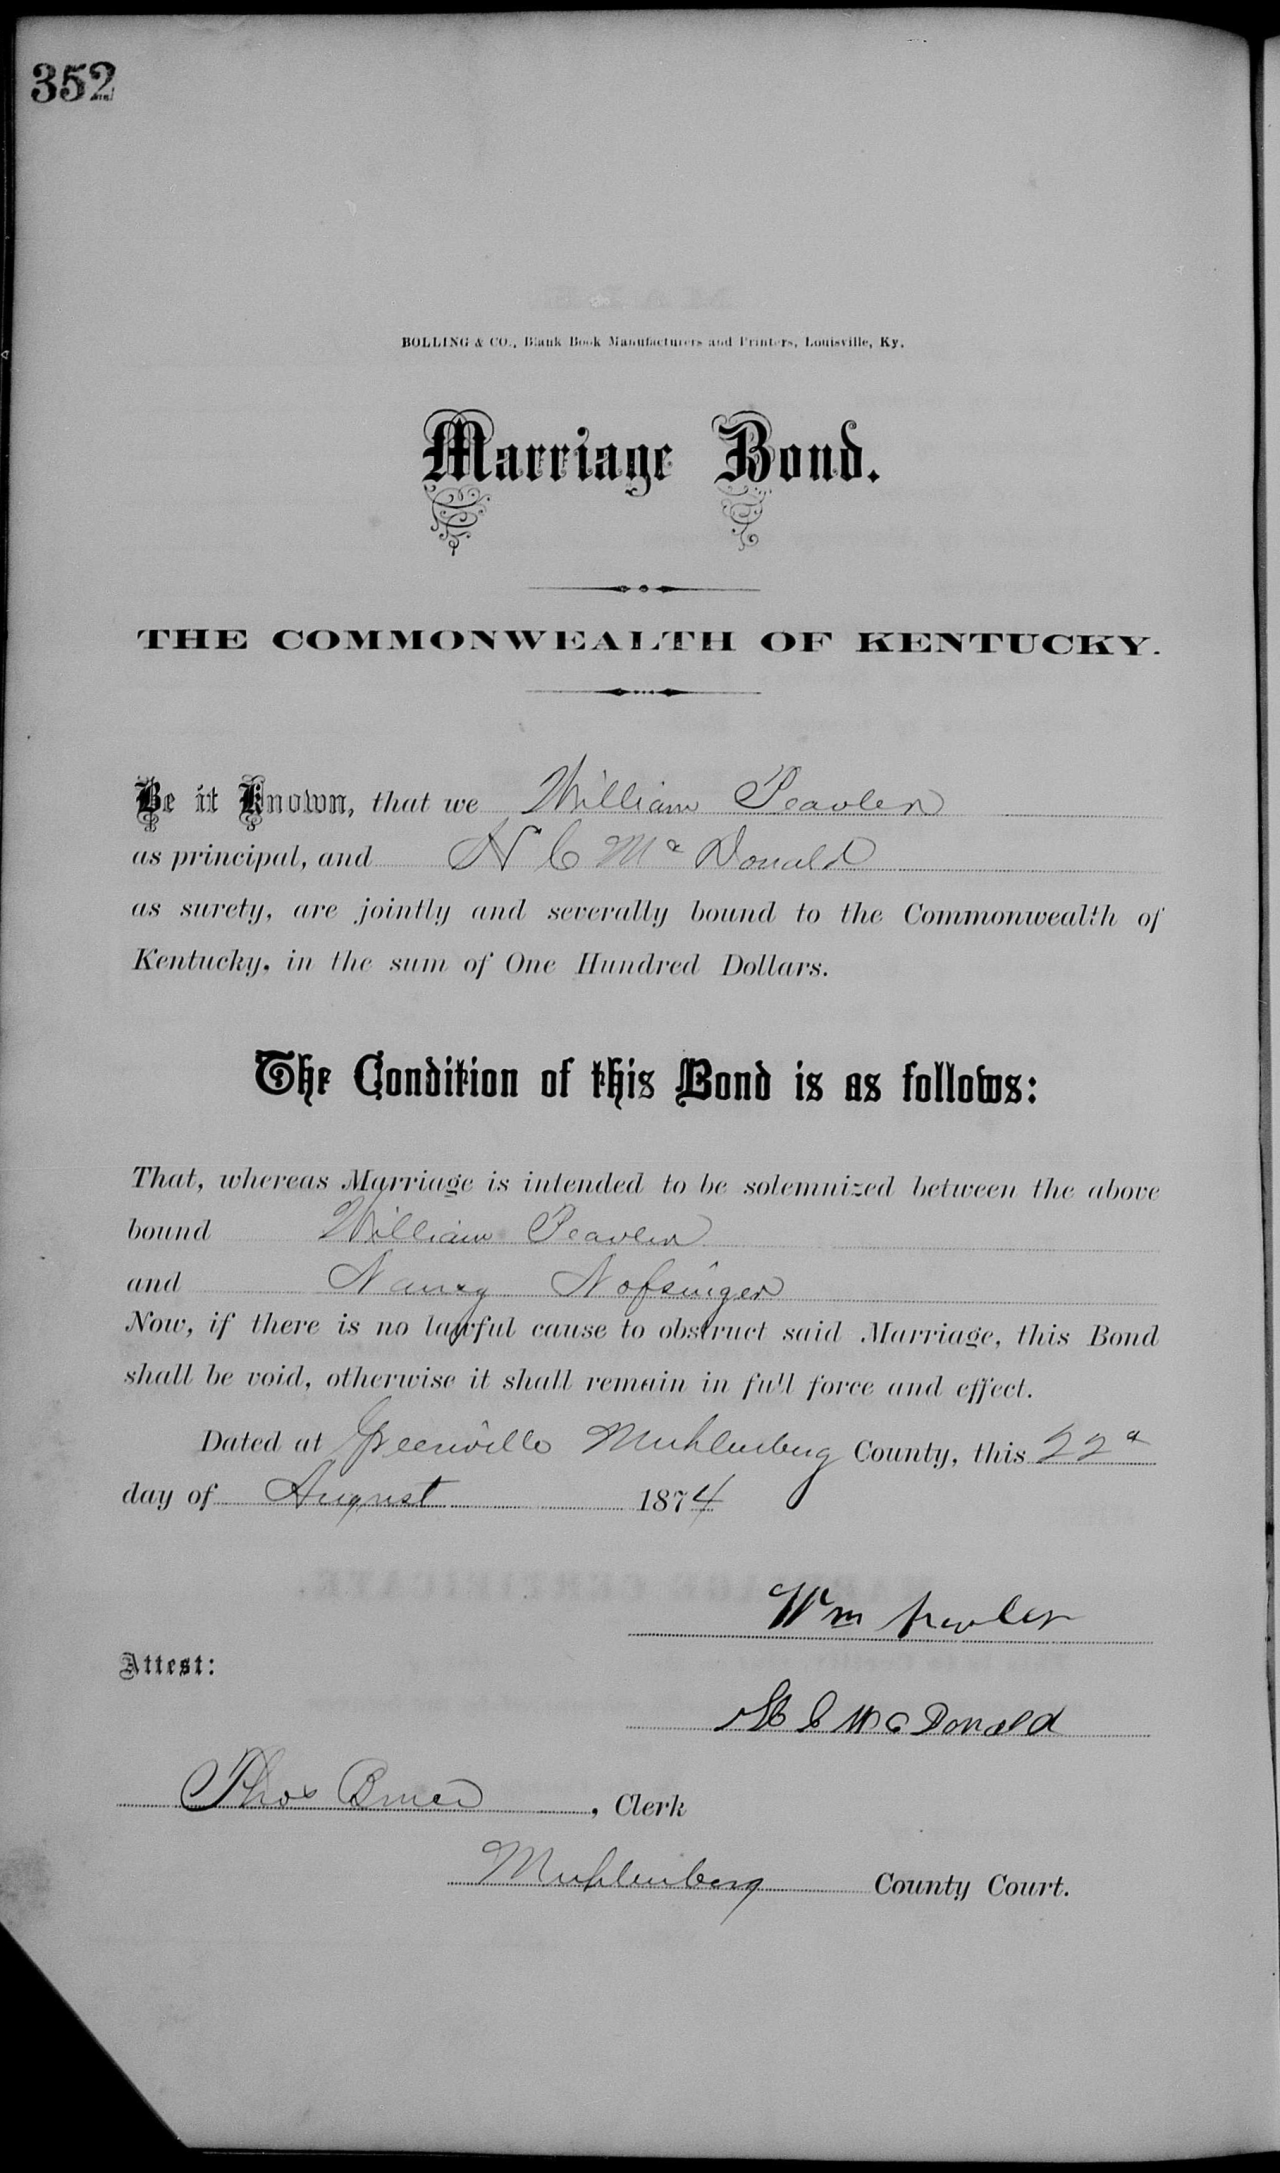 352
BOLLING & CO., Blank Book Manufacturers and Printers, Louisville, Ky.
Marriage Bond.
THE COMMONWEALTH OF KENTUCKY.
Be it Known, that we William Peavler
as principal, and H C Mc Donald
as surety, are jointly and severally bound to the Commonwealth of
Kentucky, in the sum of One Hundred Dollars.
The Condition of this Bond is as follows:
That, whereas Marriage is intended to be solemnized between the above
bound William Peavler
and Nancy Nofsinger
Now, if there is no lawful cause to obstruct said Marriage, this Bond
shall be void, otherwise it shall remain in full force and effect.
Dated at Greenville Muhlenberg County, this 22d
day of August 1874
Wm Peavler
Attest:
H C McDonald
Thos Bruce, Clerk
Muhlenberg County Court.